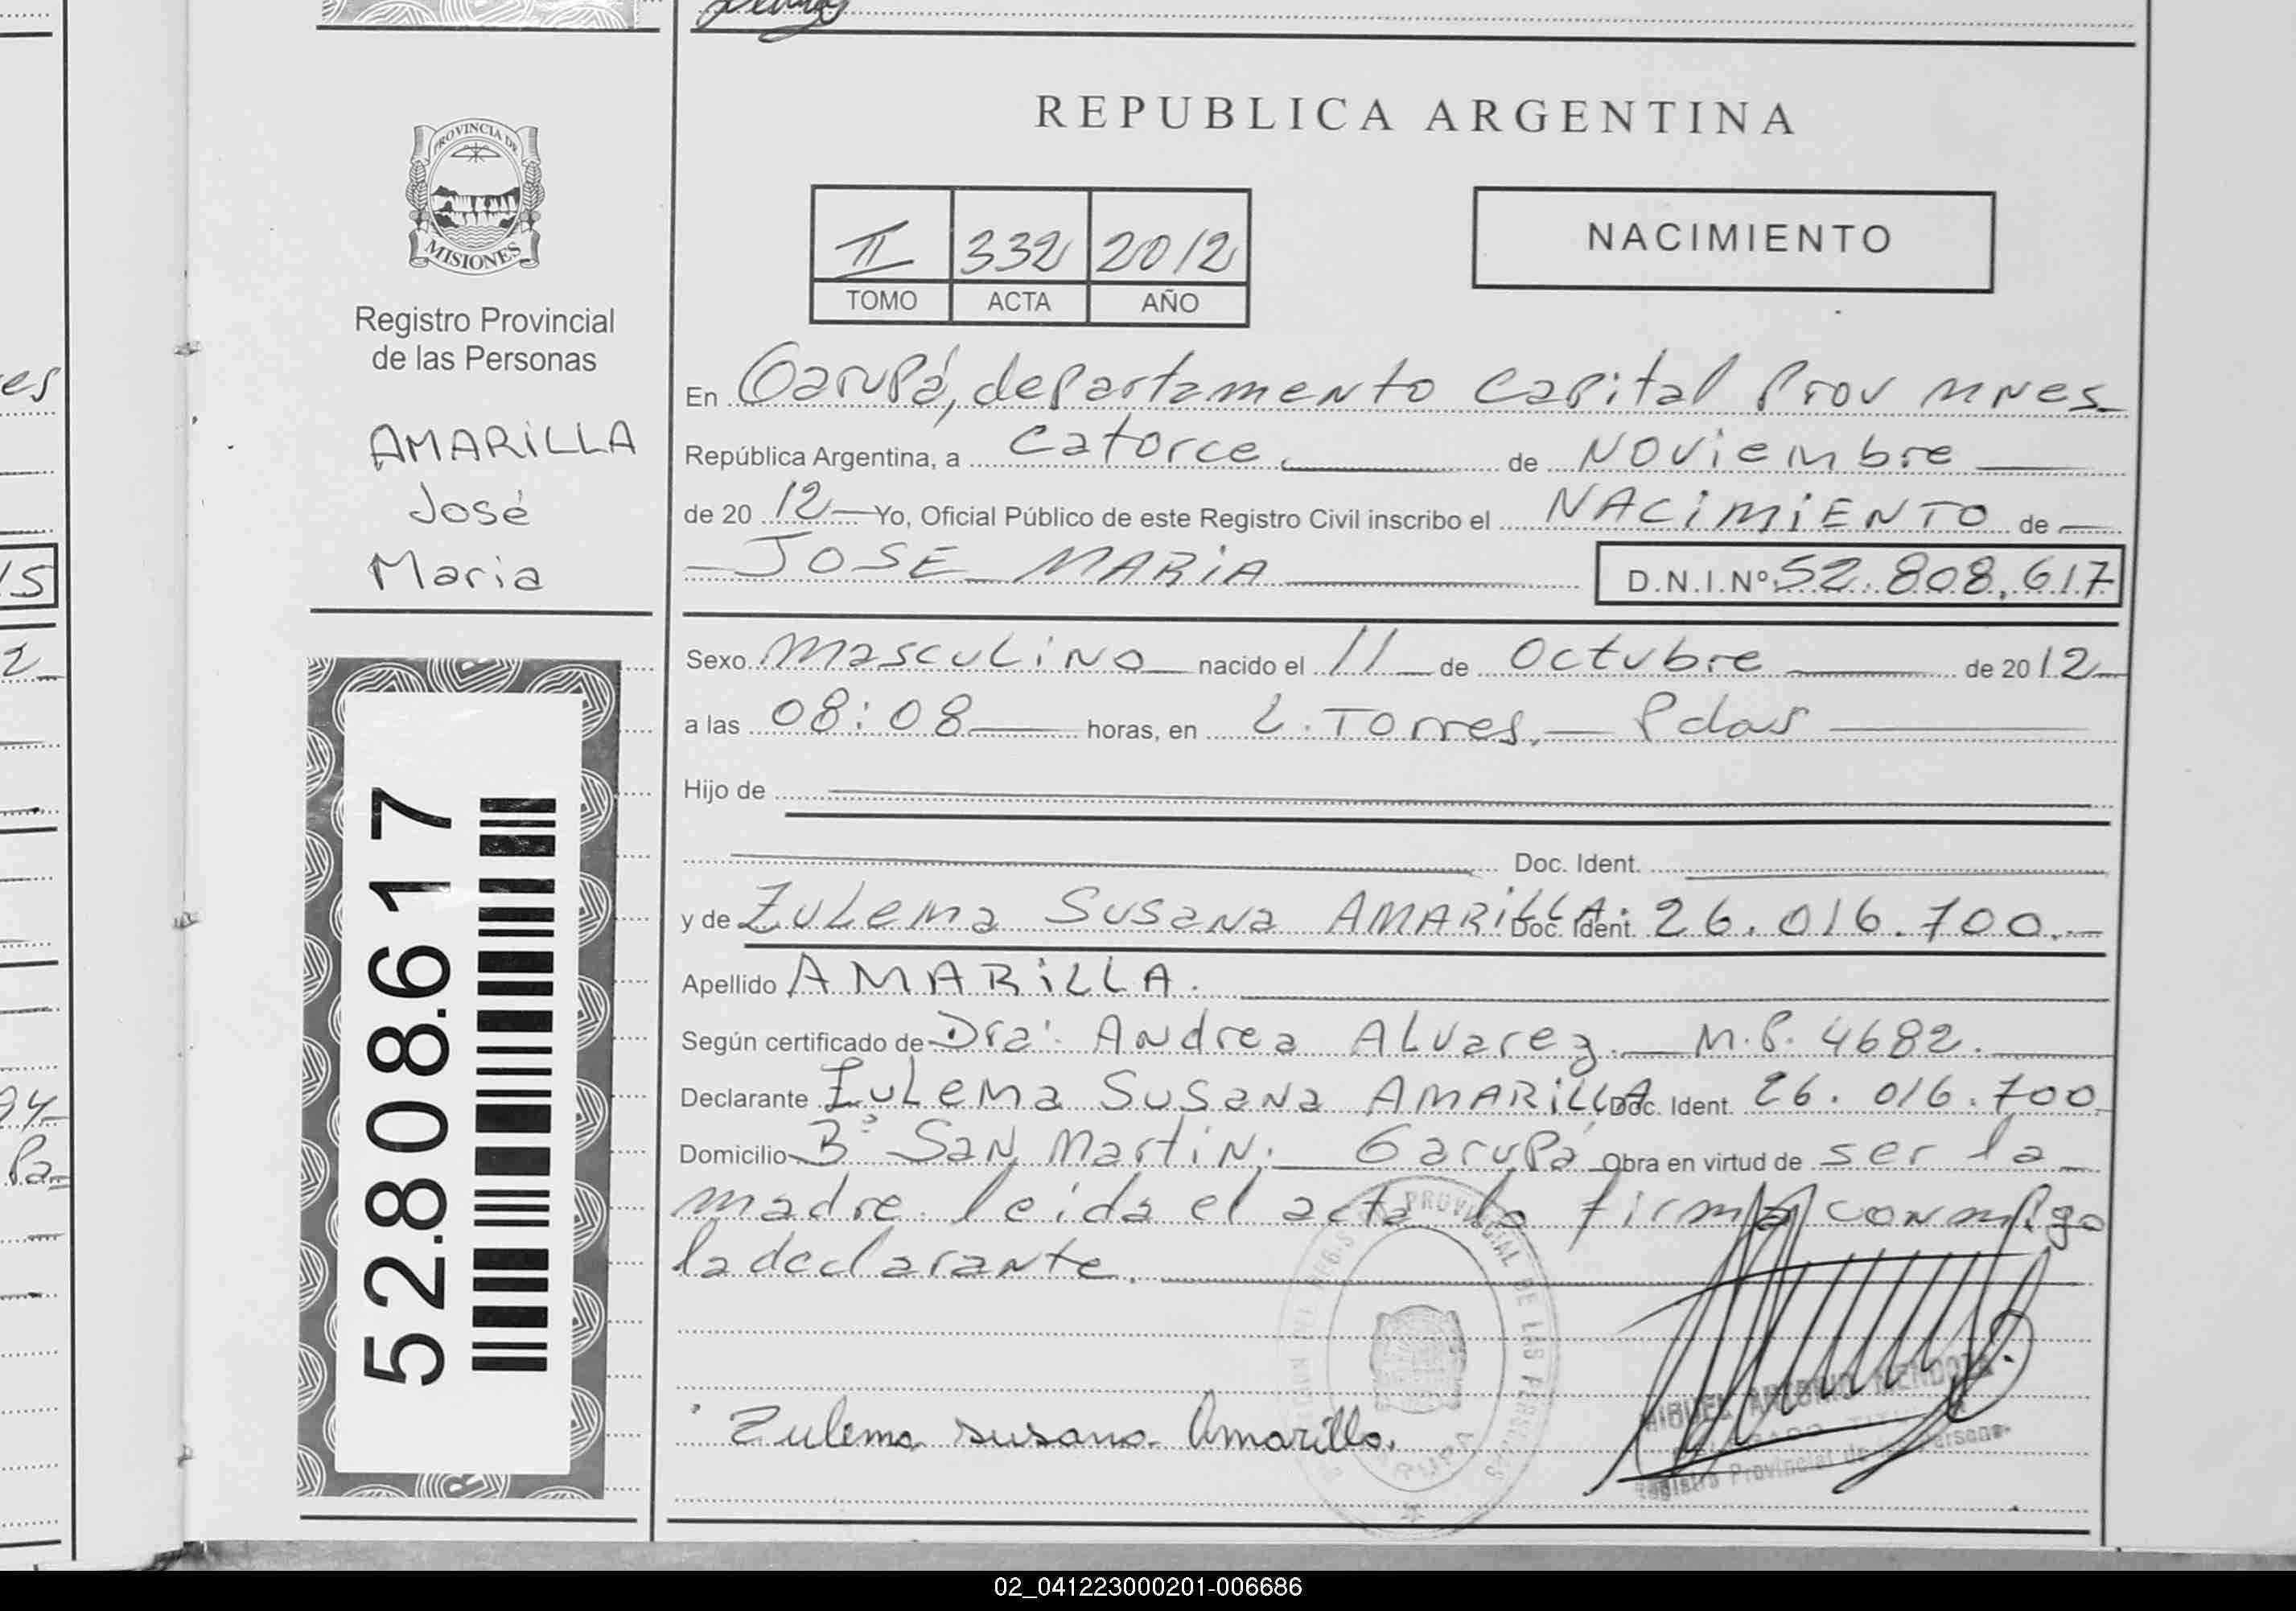 REPUBLICA ARGENTINA
PROVINCIA DE
MISIONES
Registro Provincial
de las Personas
AMARiLLA
José
Maria
52.808.617
II 332 2012
TOMO ACTA AÑO
NACIMIENTO
En Garupá, departamento Capital Prov Mnes
República Argentina, a catorce de Noviembre
de 20 12 Yo, Oficial Público de este Registro Civil inscribo el NACiMiENTO de
JOSE MARiA D.N.I.Nº 52.808.617
Sexo masculino nacido el 11 de Octubre de 20 12
a las 08:08 horas, en L. Torres. Pdas
Hijo de
Doc. Ident.
y de Zulema Susana AMARiLLA. Doc. Ident. 26.016.700.
Apellido AMARiLLA.
Según certificado de Dra: Andrea Alvarez. M.P. 4682.
Declarante Zulema Susana AMARiLLA Doc. Ident. 26.016.700
Domicilio Bº San Martin. Garupá Obra en virtud de ser la
madre. leida el acta la firma conmigo
la declarante.
Zulema susana Amarilla.
MIGUEL ANTONIO MENDOZA
Registro Provincial de las Personas
02_041223000201-006686